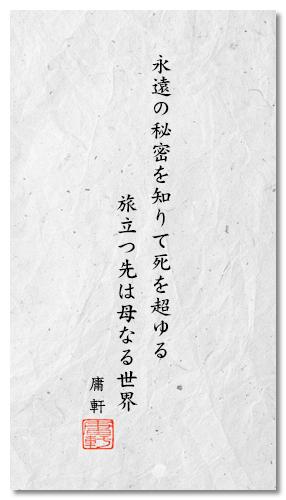 永遠の秘密を知りて死を超ゆる
旅立つ先は母なる世界
庸軒
庸軒